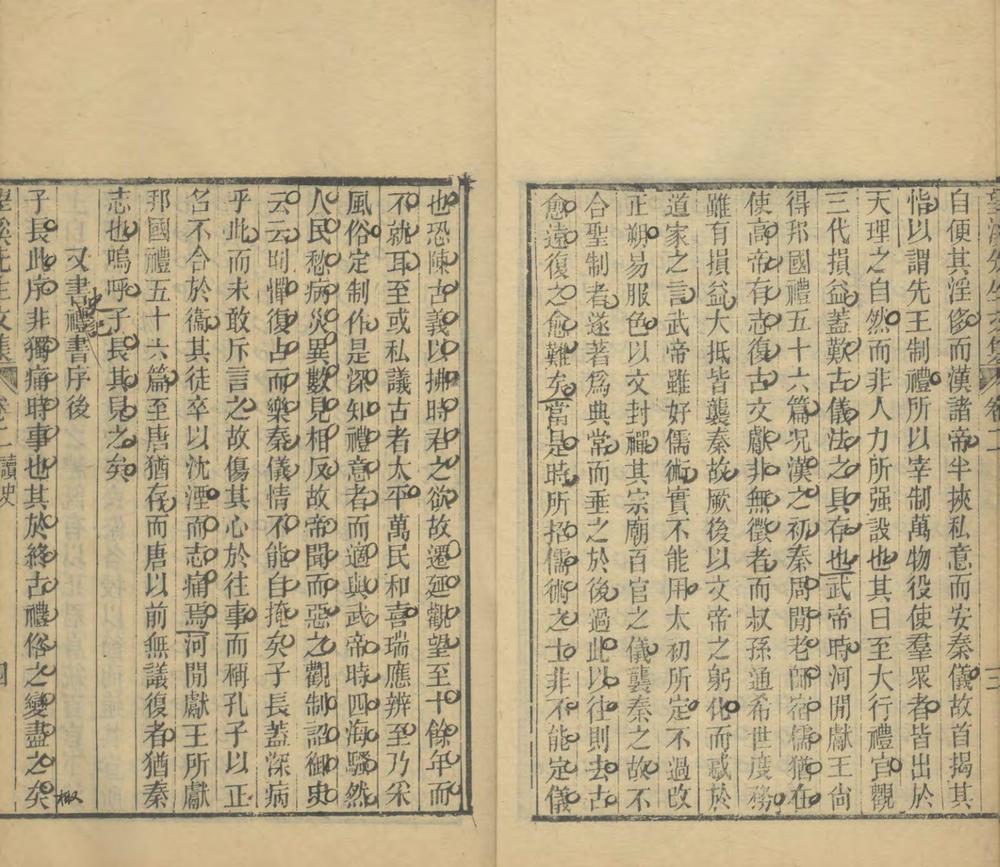 望溪先生文集 卷二 三
自便其淫侈而漢諸帝半挾私意而安秦儀故首揭其
恉以謂先王制禮所以宰制萬物役使羣眾者皆出於
天理之自然而非人力所强設也其曰至大行禮官觀
三代損益蓋歎古儀法之具存也武帝時河閒獻王尙
得邦國禮五十六篇况漢之初秦周閒老師宿儒猶在
使高帝有志復古文獻非無徵者而叔孫通希世度務
雖有損益大抵皆襲秦故厥後以文帝之躬化而惑於
道家之言武帝雖好儒術實不能用太初所定不過改
正朔易服色以文封禪其宗廟百官之儀襲秦之故不
合聖制者遂著爲典常而垂之於後過此以往則去古
愈遠復之愈難矣當是時所招儒術之士非不能定儀
也恐陳古義以拂時君之欲故遷延觀望至十餘年而
不就耳至或私議古者太平萬民和喜瑞應辨至乃采
風俗定制作是深知禮意者而適與武帝時四海騷然
人民愁病災異數見相反故帝聞而惡之觀制詔御史
云云則憚復古而樂秦儀情不能自掩矣子長蓋深病
乎此而未敢斥言之故傷其心於往事而稱孔子以正
名不合於衞其徒卒以沈湮而志痛焉河閒獻王所獻
邦國禮五十六篇至唐猶存而唐以前無議復者猶秦
志也嗚呼子長其見之矣
又書禮書序後
史記
子長此序非獨痛時事也其於終古禮俗之變盡之矣
望溪先生文集 卷二 讀史 四